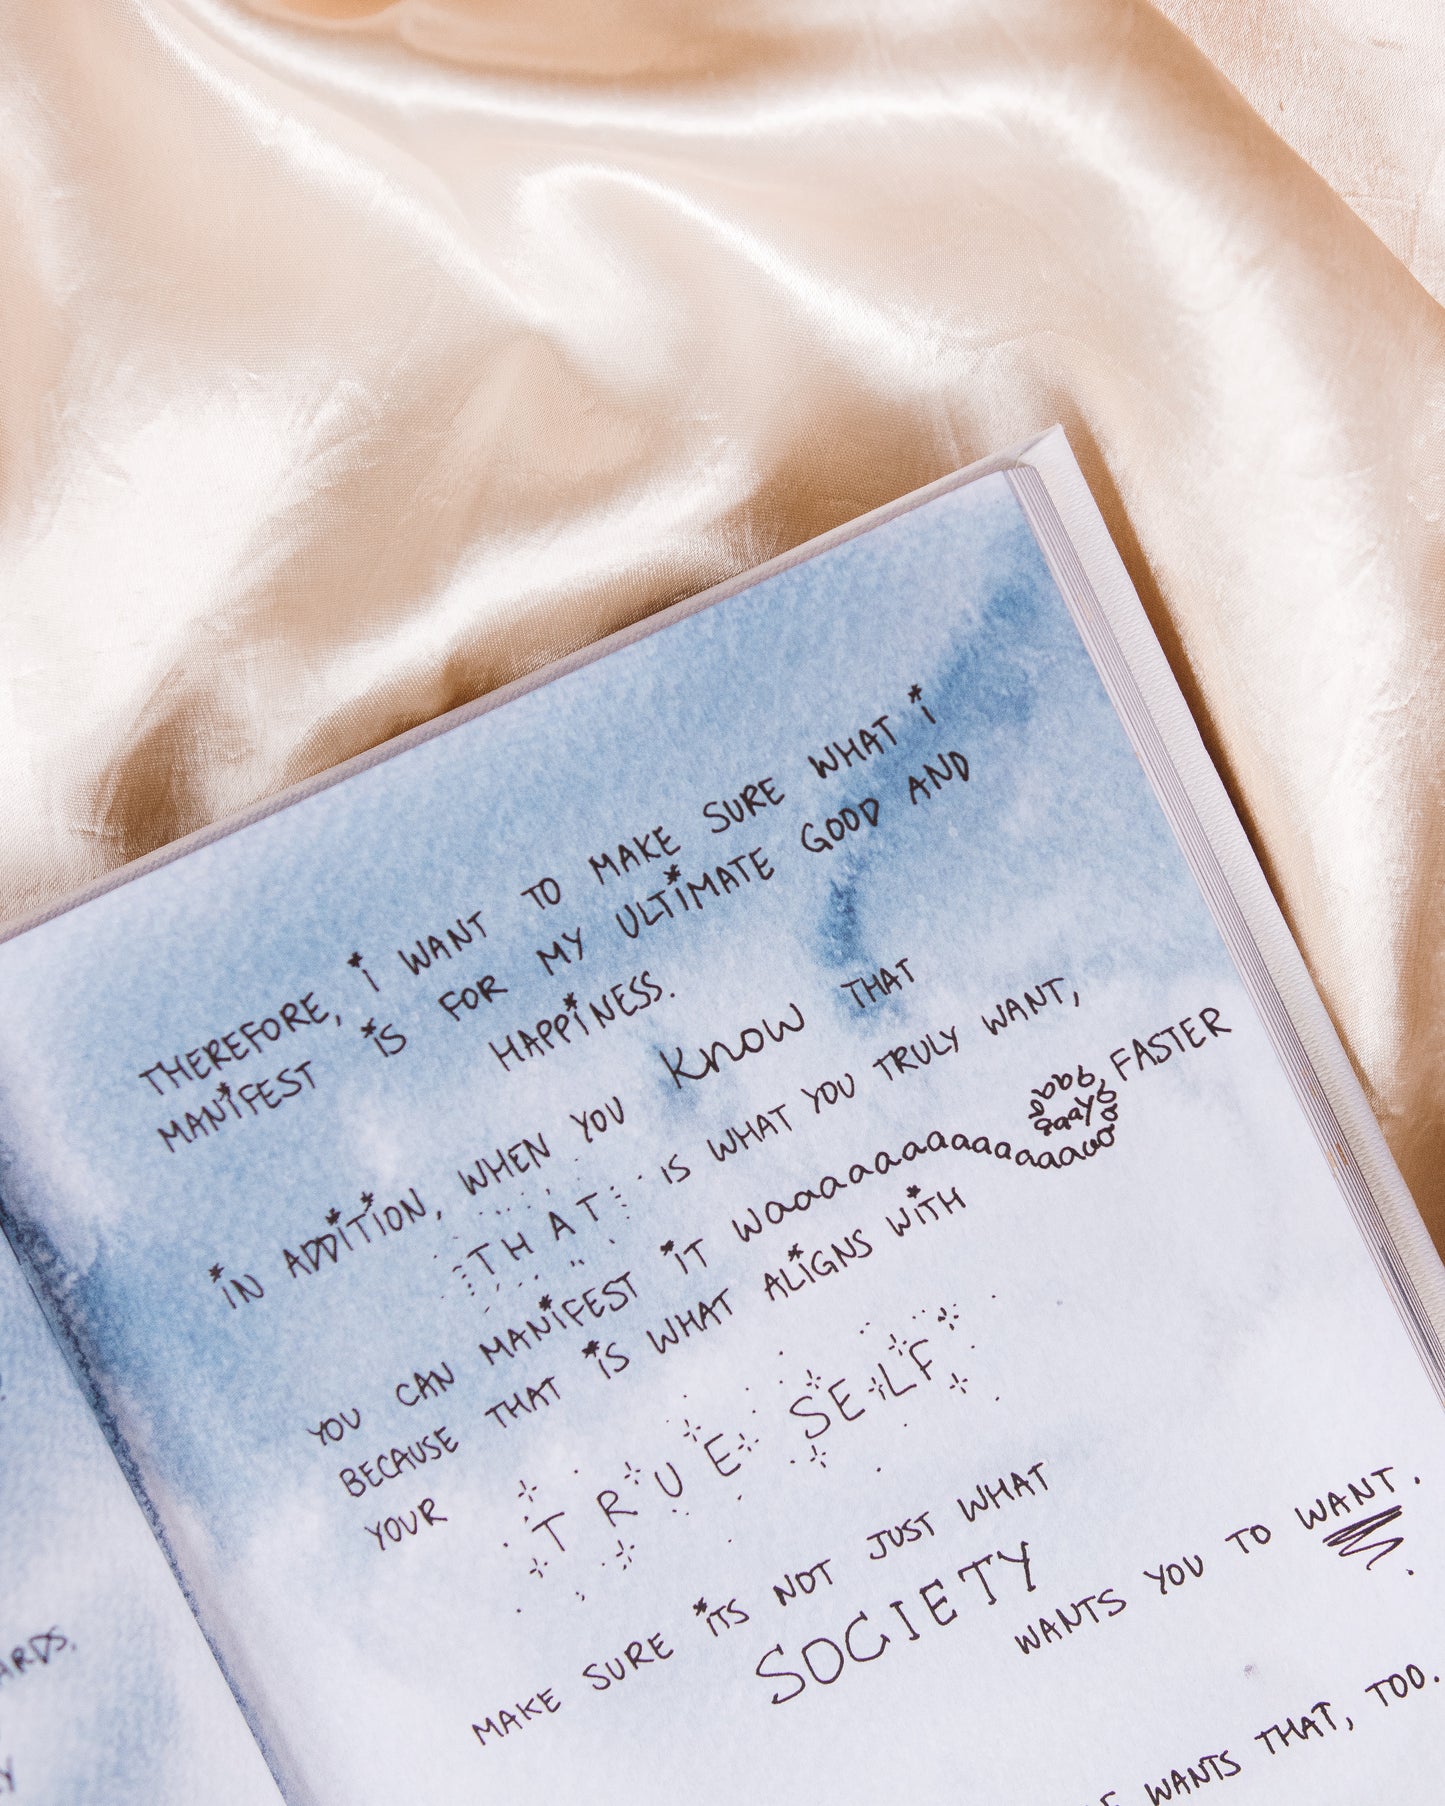 THEREFORE, i WANT TO MAKE SURE WHAT i
MANiFEST iS FOR MY ULTiMATE GOOD AND
HAPPiNESS.
iN ADDiTiON, WHEN YOU Know THAT
THAT IS WHAT YOU TRULY WANT,
YOU CAN MANiFEST iT waaaaaaaaaaaaaaaaaaaaaaay FASTER
BECAUSE THAT iS WHAT ALiGNS WiTH
YOUR TRUE SELF
MAKE SURE iTS NOT JUST WHAT
SOCIETY
WANTS YOU TO WANT.
WANTS THAT, TOO.
ARDS.